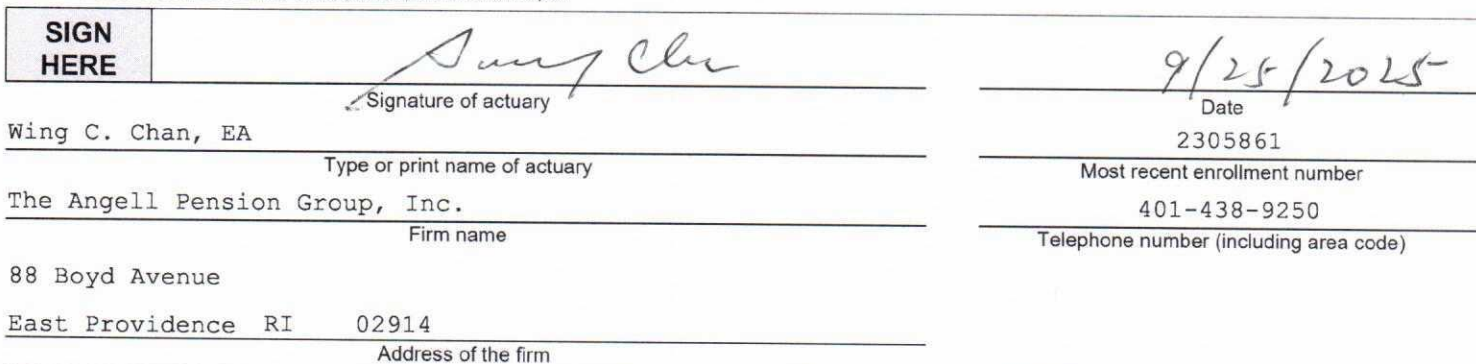 SIGN
HERE
9/25/2025
Signature of actuary
Date
Wing C. Chan, EA
2305861
Type or print name of actuary
Most recent enrollment number
The Angell Pension Group, Inc.
401-438-9250
Firm name
Telephone number (including area code)
88 Boyd Avenue
East Providence RI 02914
Address of the firm